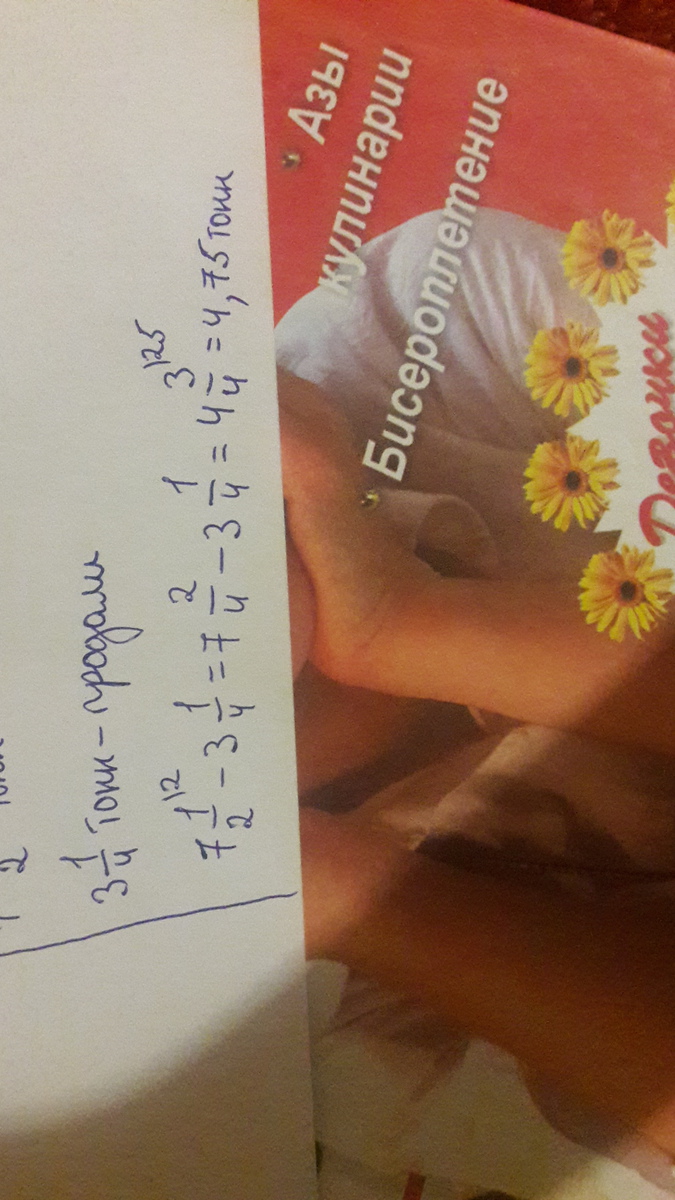 2
3 1/4 тонн – продали
7 1/2 |2 – 3 1/4 = 7 2/4 – 3 1/4 = 4 3/4 |25 = 4,75 тонн
• Азы
кулинарии
• Бисероплетение
Девочки